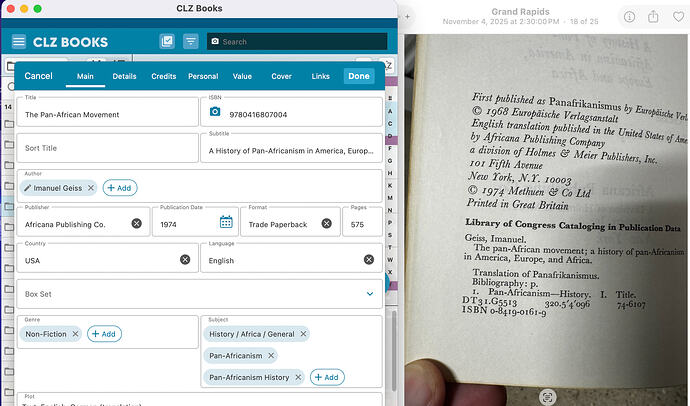 CLZ BOOKS
Search
Cancel
Main
Details
Credits
Personal
Value
Cover
Links
Done
Title
The Pan-African Movement
ISBN
9780416807004
Sort Title
Subtitle
A History of Pan-Africanism in America, Europ...
Author
Imanuel Geiss
+ Add
Publisher
Africana Publishing Co.
Publication Date
1974
Format
Trade Paperback
Pages
575
Country
USA
Language
English
Box Set
Genre
Non-Fiction
+ Add
Subject
History / Africa / General
Pan-Africanism
Pan-Africanism History
+ Add
Plot
14
B
A
C
D
F
G
H
I
J
K
L
M
N
O
P
R
S
T
Grand Rapids
November 4, 2025 at 2:30:00 PM · 18 of 25
First published as Panafrikanismus by Europäische Verla
© 1968 Europäische Verlagsanstalt
English translation published in the United States of Ame
by Africana Publishing Company
a division of Holmes & Meier Publishers, Inc.
101 Fifth Avenue
New York, N.Y. 10003
© 1974 Methuen & Co Ltd
Printed in Great Britain
Library of Congress Cataloging in Publication Data
Geiss, Imanuel.
The pan-african movement; a history of pan-africanism
in America, Europe, and Africa.
Translation of Panafrikanismus.
Bibliography: p.
1. Pan-Africanism—History. I. Title.
DT31.G5513 320.5'4'096 74-6107
ISBN 0-8419-0161-9